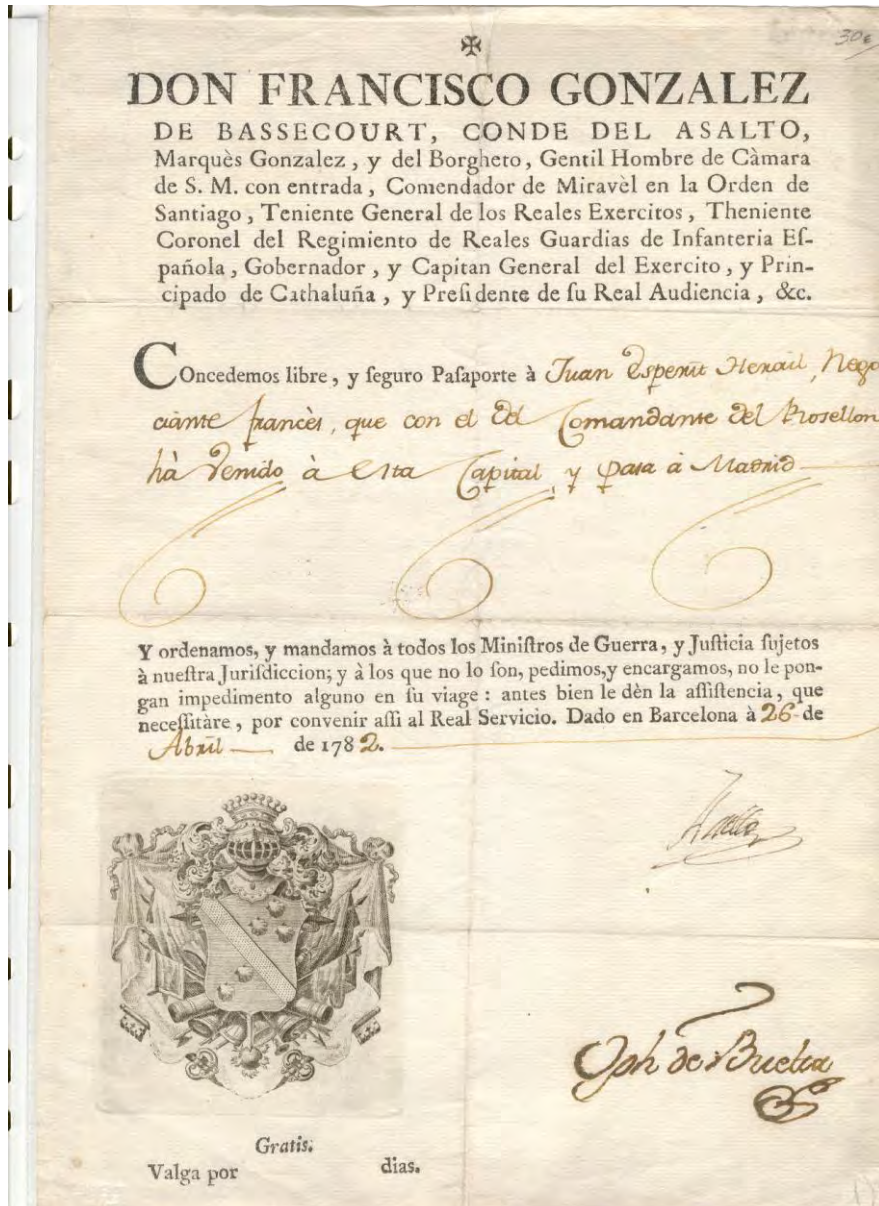 30€
DON FRANCISCO GONZALEZ
DE BASSECOURT, CONDE DEL ASALTO,
Marquès Gonzalez, y del Borgheto, Gentil Hombre de Càmara
de S. M. con entrada, Comendador de Miravèl en la Orden de
Santiago, Teniente General de los Reales Exercitos, Theniente
Coronel del Regimiento de Reales Guardias de Infanteria Eſ-
pañola, Gobernador, y Capitan General del Exercito, y Prin-
cipado de Cathaluña, y Preſidente de ſu Real Audiencia, &c.
COncedemos libre, y ſeguro Paſaporte à Juan Esperit Herail, Nego
ciante francès, que con el del Comandante del Rosellon
hà venido à esta Capital, y pasa à Madrid
Y ordenamos, y mandamos à todos los Miniſtros de Guerra, y Juſticia ſujetos
à nueſtra Juriſdiccion; y à los que no lo ſon, pedimos, y encargamos, no le pon-
gan impedimento alguno en ſu viage: antes bien le dèn la aſſiſtencia, que
neceſſitàre, por convenir aſſi al Real Servicio. Dado en Barcelona à 26 de
Abril de 1782.
Gratis.
Valga por dias.